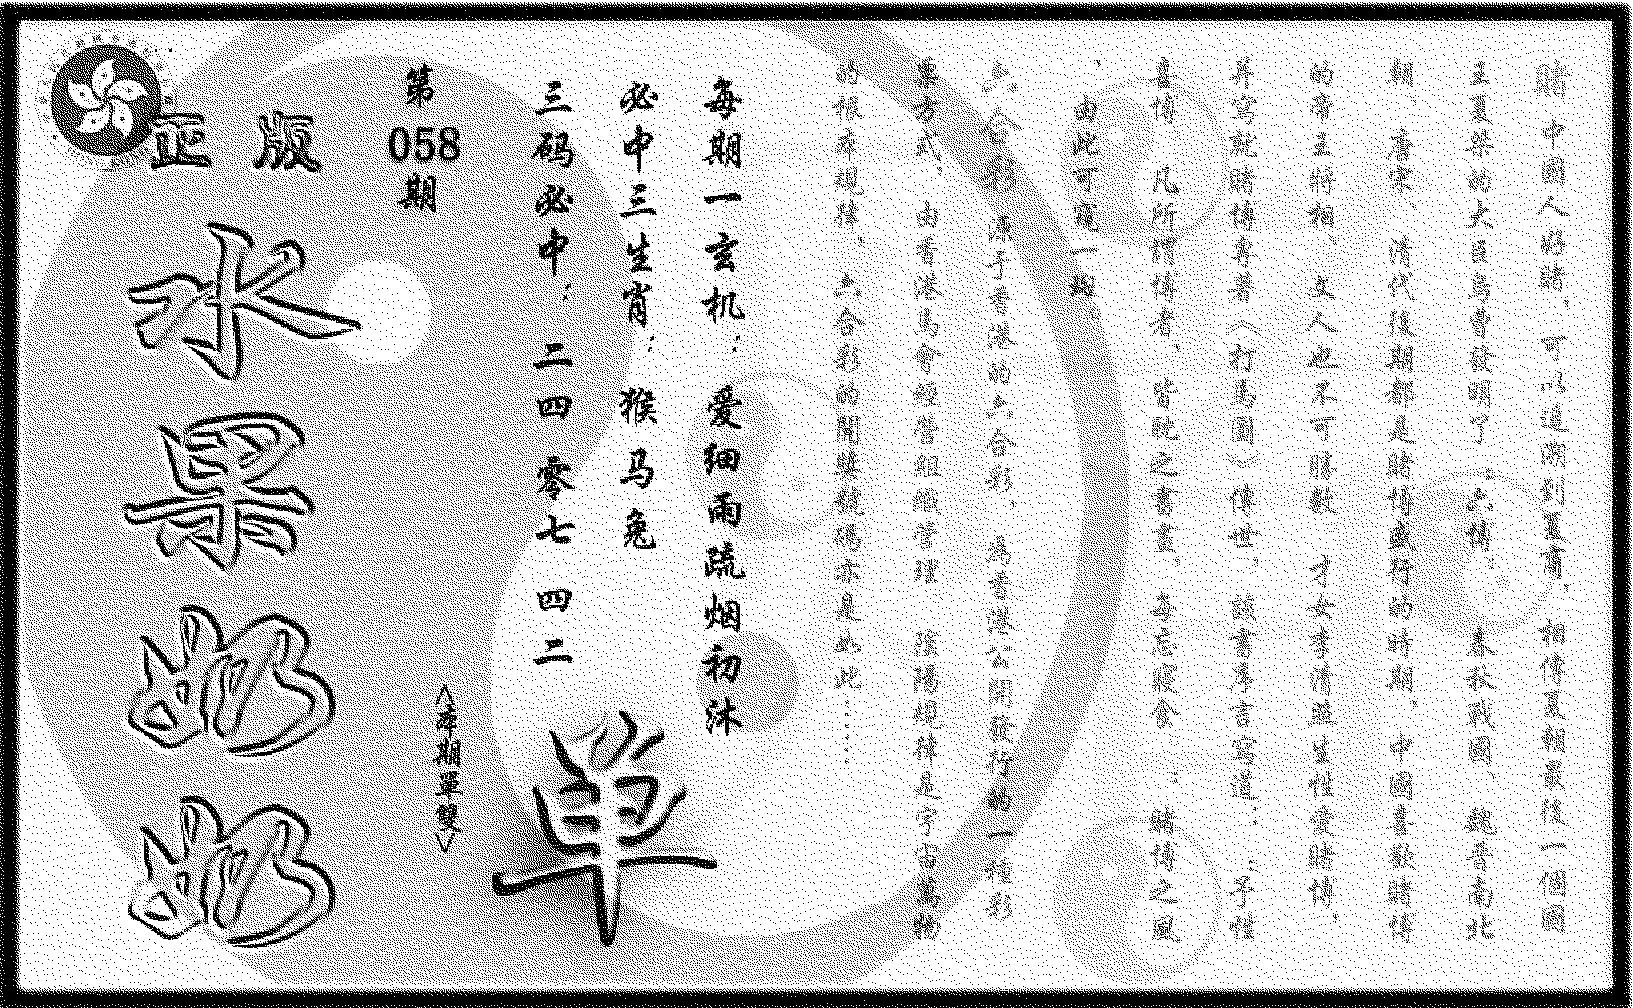 賭中國人好賭，可以追溯到夏商，相傳夏朝最後一個國
王夏桀的大臣烏曹發明了“六博”。春秋戰國、魏晉南北
朝、唐宋、清代後期都是賭博盛行的時期，中國喜歡賭博
的帝王將相、文人也不可勝數，才女李清照生性愛賭博，
并寫就賭博專著《打馬圖》傳世，該書序言寫道：“予性
喜博，凡所謂博者，皆耽之晝夜，每忘寢食”；賭博之風
，由此可窺一斑
六合彩，源于香港的六合彩，為香港公開發行的一種彩
票方式，由香港馬會經營組織管理，陰陽規律是宇宙萬物
的根本規律，六合彩的開獎號碼亦是如此……
每期一玄机：爱细雨疏烟初沐
必中三生肖：猴马兔
三码必中：二四 零七 四二
單
第058期
正版
水果奶奶